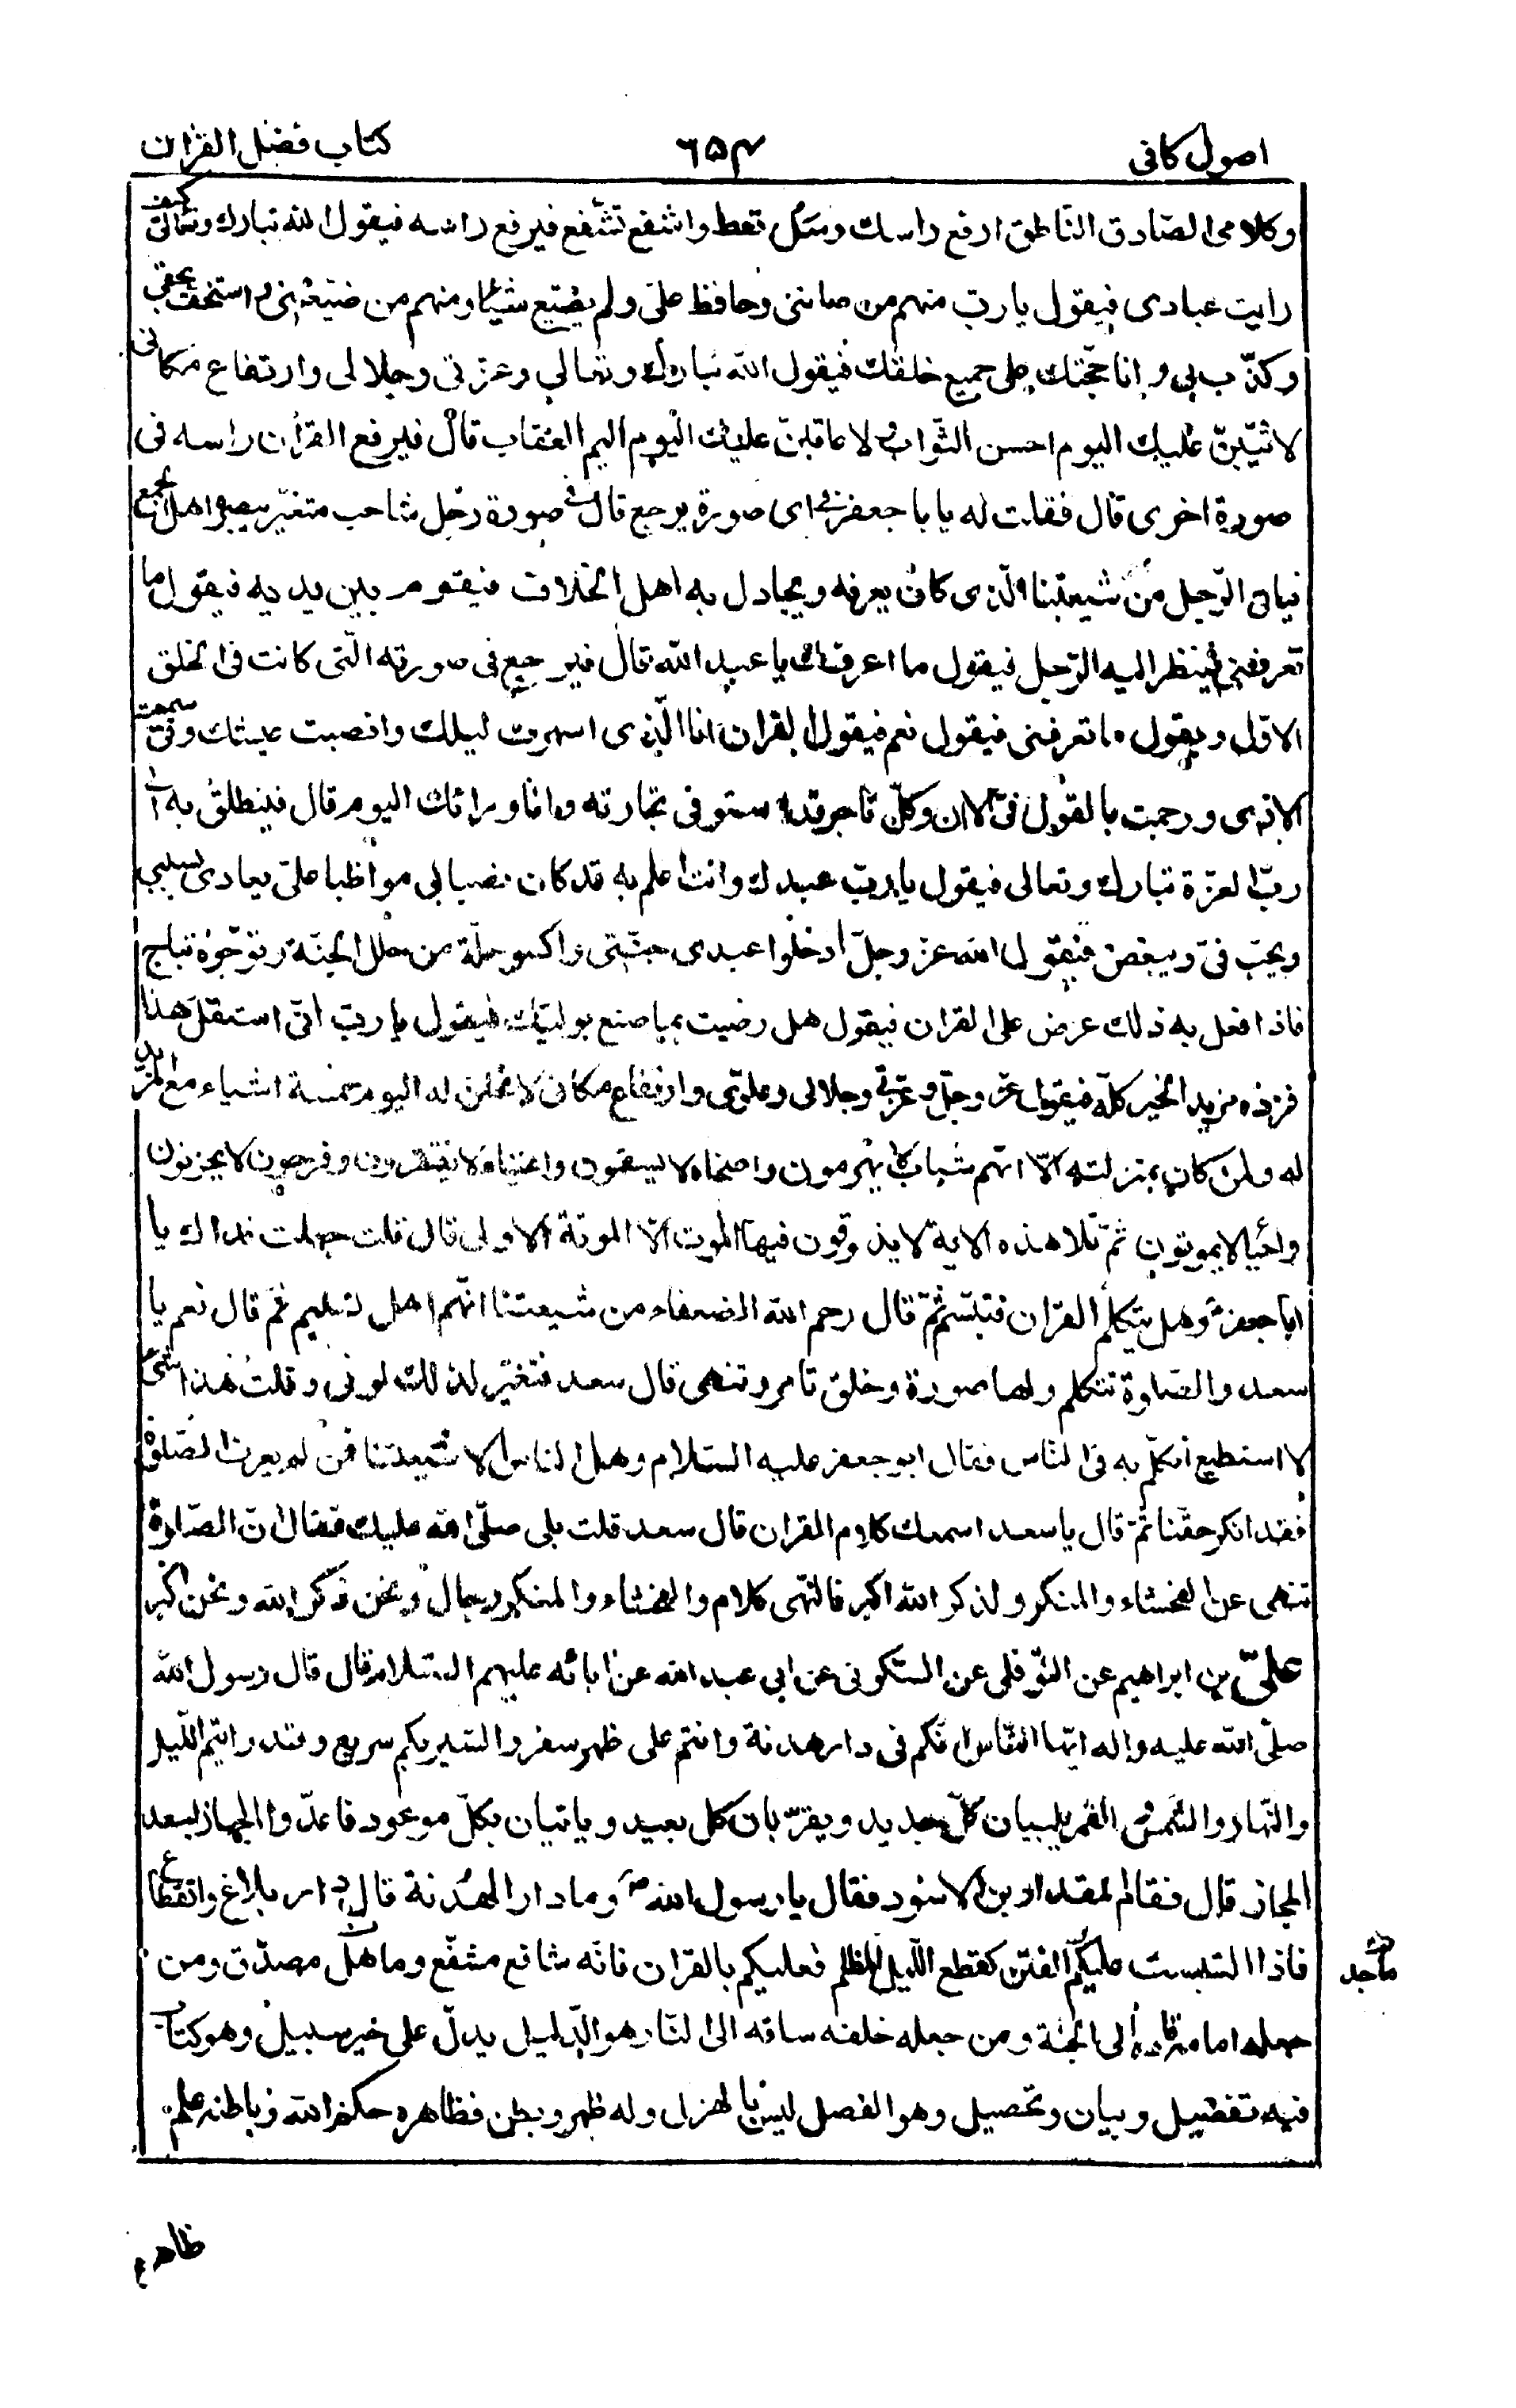 اصول کافی ۶۵۴ کتاب فضل القران
وکلامی الصّادق النّاطق ارفع راسك وسَل تعط واشفع تشّفع فیرفع راسه فیقول الله تبارك وتعالی کیف
رایت عبادی فیقول یا ربّ منهم من صاننی وحافظ علیّ ولم یضیّع شیئا ومنهم من ضیّعنی واستخفّ بحقی
وکذّب بی وانا حجّتك علی جمیع خلقك فیقول الله تبارك وتعالی وعزتی وجلالی وارتفاع مکانی
لاثیبنّ علیك الیوم احسن الثّواب ولاعاقبنّ علیك الیوم الیم العقاب قال فیرفع القرأن راسه فی
صورة اخری قال فقلت له یا با جعفر فی ای صورة یرجع قال فی صورة رجل شاحب متغیّر یبصره اهل الجمع
فیاتی الرّجل من شیعتنا الّذی کان یعرفه ویجادل به اهل الخلاف فیقوم بین یدیه فیقول ما
تعرفنی فینظر الیه الرّجل فیقول ما اعرفك یا عبد الله قال فیرجع فی صورته الّتی کانت فی الخلق
الاوّل ویقول ما تعرفنی فیقول نعم فیقول القران انا الّذی اسهرت لیلك وانصبت عیشك وفیّ سمعت
الاذی ورجمت بالقول فیّ الان وکلّ تاجر قد استوفی تجارته وانا وراءك الیوم قال فینطلق به الی
ربّ العزّة تبارك وتعالی فیقول یا ربّ عبدك وانت اعلم به قد کان نصبا بی مواظبا علیّ یعادی بسببی
ویحبّ فیّ ویبغض فیقول الله عز وجلّ أدخلوا عبدی جنّتی واکسوه حلّة من حلل الجنّة وتوّجوه بتاج
فاذا فعل به ذلك عرض علی القران فیقول هل رضیت بما صنع بولیّك فیقول یا ربّ انّی استقلّ هذا
فزده مزید الخیر کلّه فیقول عز وجلّ وعزّتی وجلالی وعلوّی وارتفاع مکانی لانحلن له الیوم خمسة اشیاء مع المزید
له ولمن کان بمنزلته الّا انّهم شباب لا یهرمون واصحاء لا یسقمون واغنیاء لا یفتقرون وفرحون لا یحزنون
واحیاء لا یموتون ثمّ تلا هذه الایة لا یذوقون فیها الموت الّا الموتة الاولی قال قلت جعلت فداك یا
ابا جعفر وهل یتکلّم القرٰان فتبسّم ثمّ قال رحم الله الضعفاء من شیعتنا انّهم اهل تسلیم ثم قال نعم یا
سعد والصّلوة تتکلم ولها صورة وخلق تامر وتنهی قال سعد فتغیّر لذلك لونی وقلت هذا شیء
لا استطیع أتکلّم به فی النّاس فقال ابو جعفر علیه السّلام وهل الناس الا شیعتنا فمن لم یعرف الصّلوة
فقد انکر حقّنا ثمّ قال یا سعد اسمعك کلام القران قال سعد قلت بلی صلّی الله علیك فقال انّ الصّلوة
تنهی عن الفحشاء والمنکر ولذکر الله اکبر فالنّهی کلام والفحشاء والمنکر رجال ونحن ذکر الله ونحن اکبر
علیّ بن ابراهیم عن النّوفلی عن السّکونی عن ابی عبد الله عن ابائه علیهم السّلام قال قال رسول الله
صلّی الله علیه واله ایّها النّاس انّکم فی دار هدنة وانتم علی ظهر سفر والسّیر بکم سریع وقد رایتم اللّیل
والنّهار والشّمس والقمر یبلیان کلّ جدید ویقرّبان کل بعید ویاتیان بکلّ موعود فاعدّوا الجهاز لبعد
المجاز قال فقام المقداد بن الاسود فقال یا رسول الله ص وما دار الهُدنة قال دار بلاغ وانقطاع
فاذا التبست علیکم الفتن کقطع اللّیل المظلم فعلیکم بالقران فانّه شافع مشفّع وماحل مصدّق ومن
جعله امامه قاده إلی الجنّة ومن جعله خلفه ساقه الی النّار وهو الدّلیل یدلّ علی خیر سبیل وهو کتاب
فیه تفضیل وبیان وتحصیل وهو الفصل لیس بالهزل وله ظهر وبطن فظاهره حکم الله وباطنه علم
ماجد
ظاهره